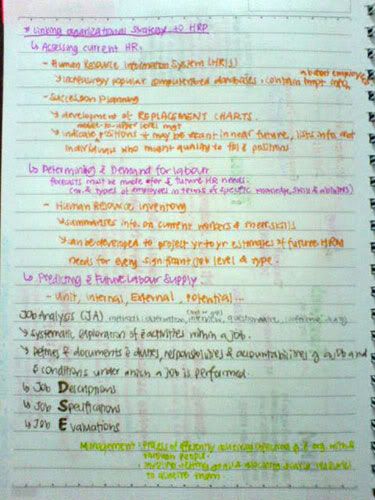 * Linking organizational strategy to HRP
↳ Assessing current HR.
- Human Resource Information System (HRIS)
about employees
↳ increasingly popular computerated databases, contain impt info,
- Succession Planning
↳ development of REPLACEMENT CHARTS.
middle-to-upper level mgt
↳ indicate positions may be vacant in near future, lists info. abt
individuals who might qualify to fill positions
↳ Determining Demand for labour
forecasts must be made for future HR needs.
(no. & types of employees in terms of specific knowledge, skill & abilities)
- Human Resource inventory
↳ summarises info. on current workers & their skills
↳ can be developed to project yr-to-yr estimates of future HRM
needs for every significant job level & type.
↳ Predicting Future Labour Supply.
- Unit, Internal, External, Potential...
Job Analysis (JA) methods: observation, interview, questionnaire,
↳ systematic exploration of activities within a job.
↳ Defines & documents duties, responsibilities & accountabilities of a job and
conditions under which a job is performed.
↳ Job Descriptions
↳ Job Specifications
↳ Job Evaluations
Management: Process of efficiently achieving objectives of org. with &
through people.
to achieve them